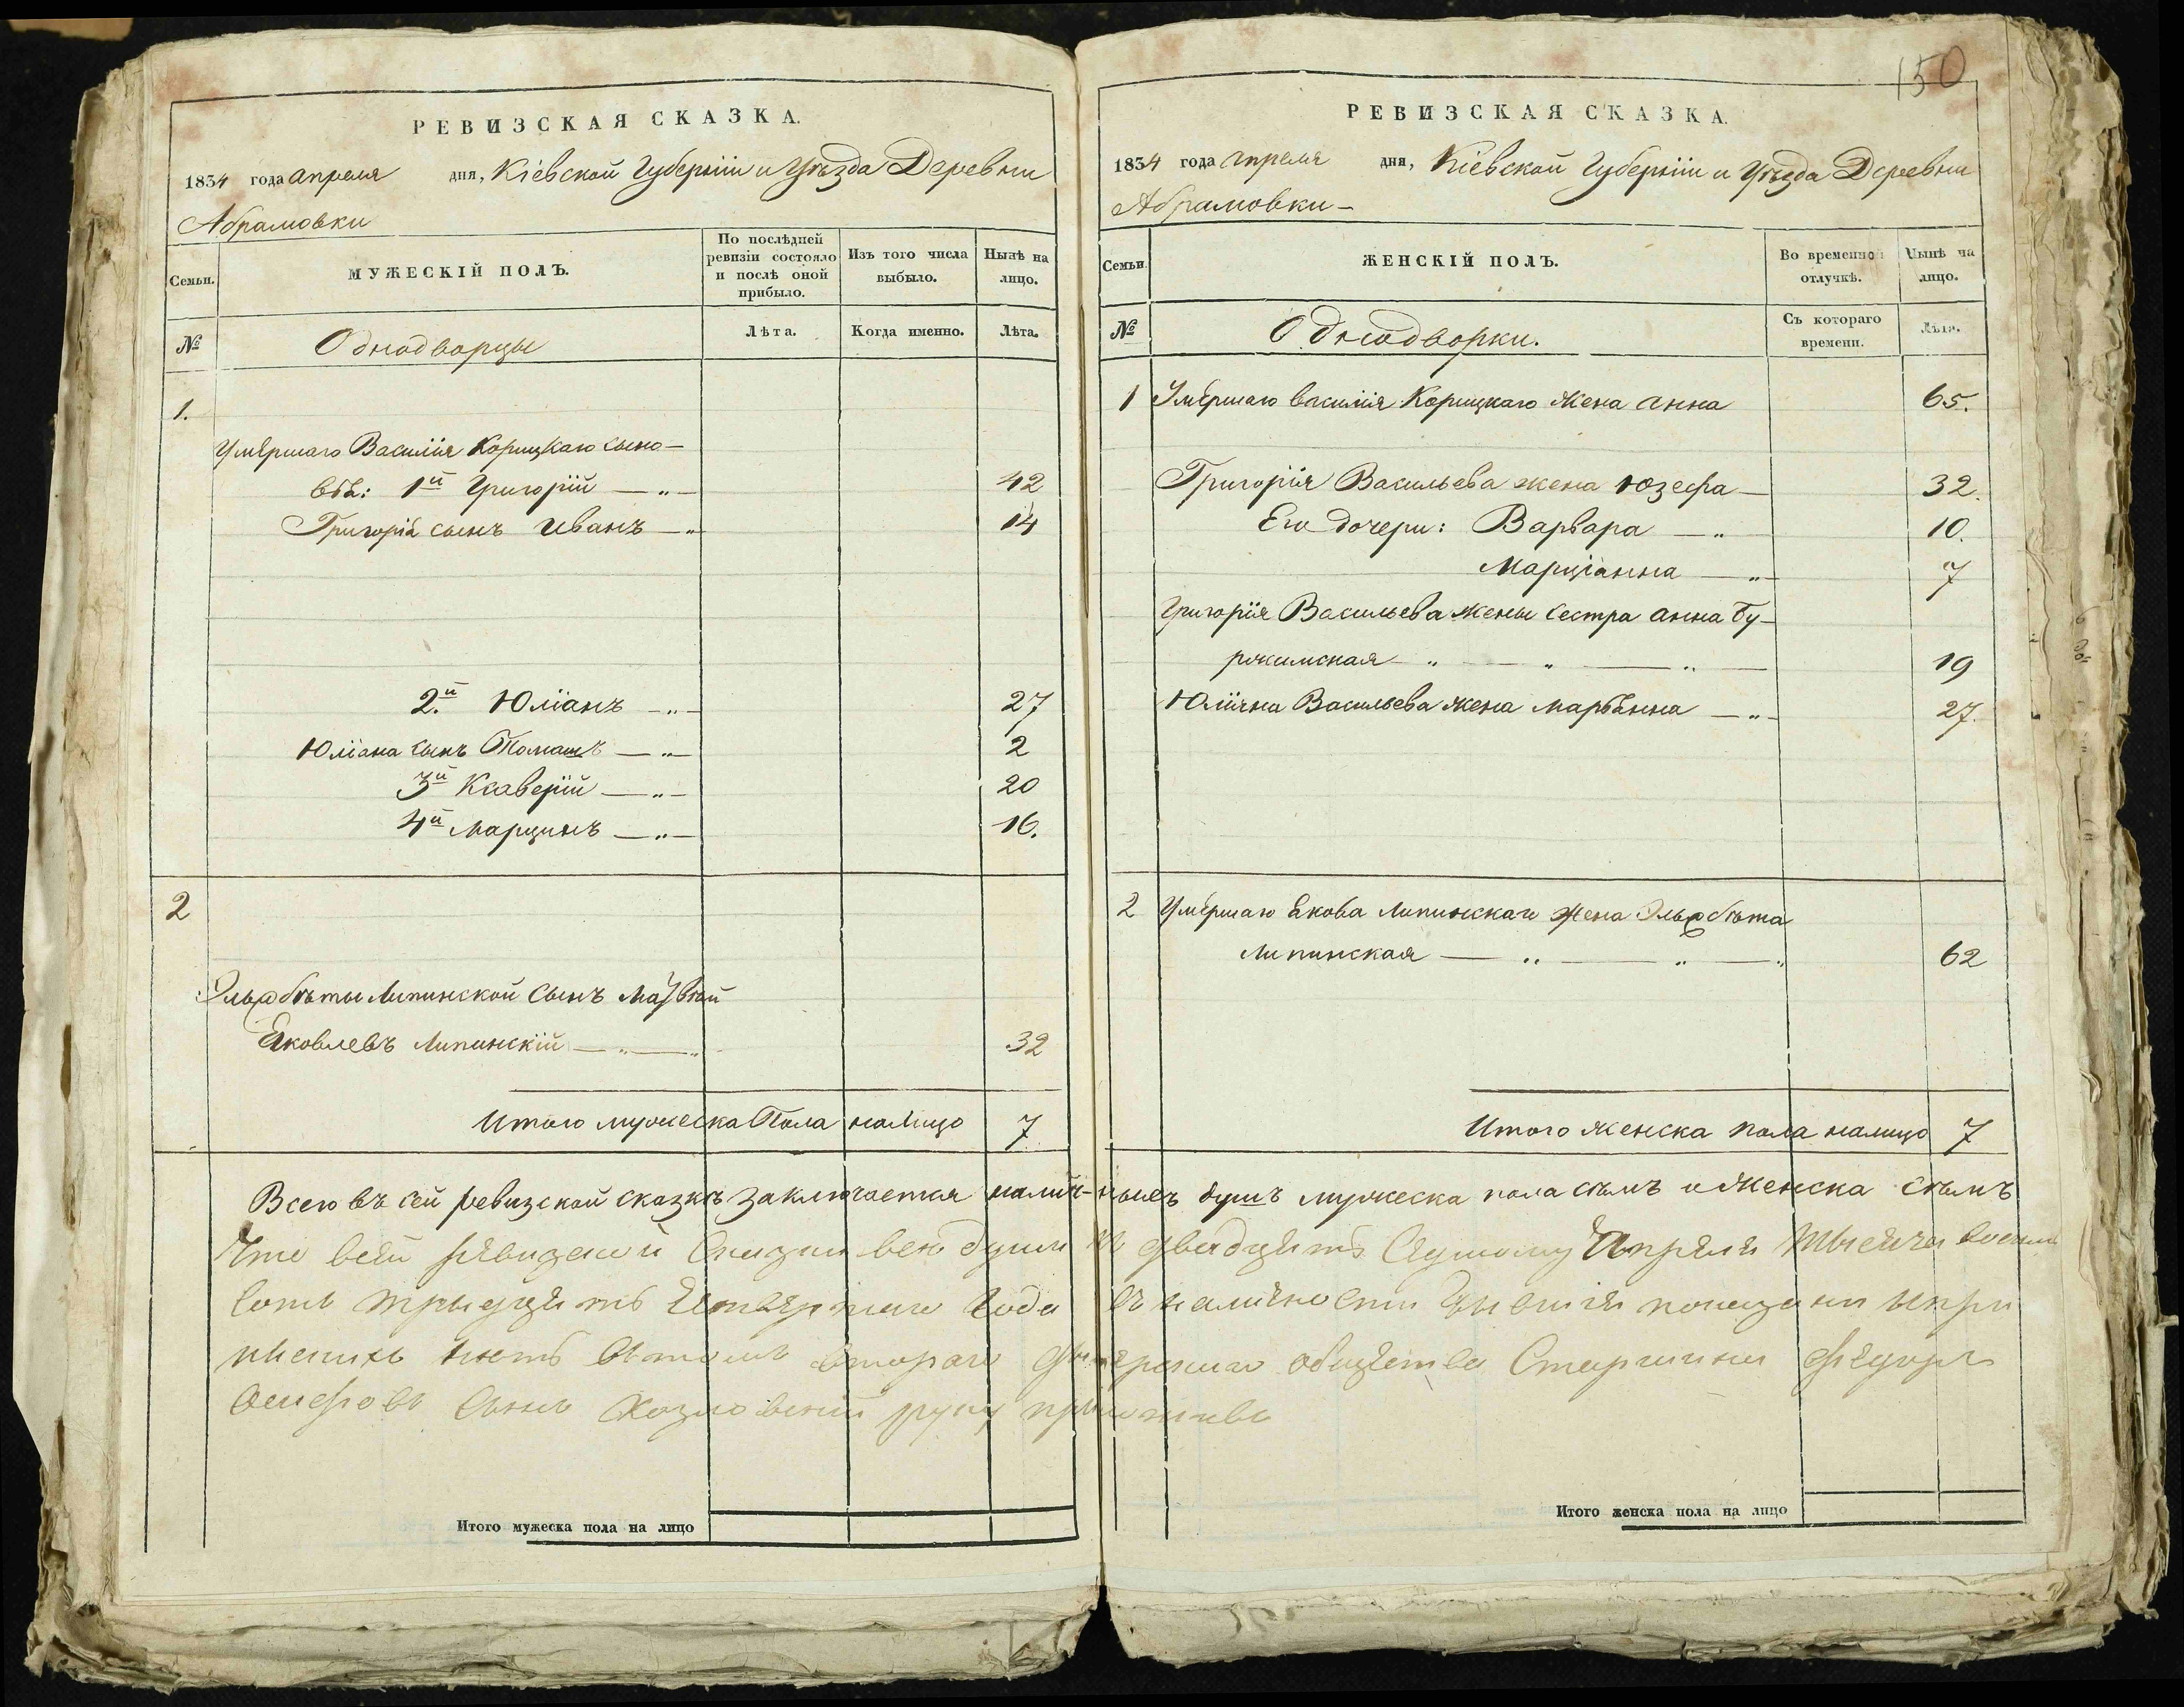 РЕВИЗСКАЯ СКАЗКА.
1834 года апреля дня, Кіевской Губерніи и Уѣзда Деревни
Абрамовки
Семьи.
МУЖЕСКІЙ ПОЛЪ.
По послѣдней ревизіи состояло и послѣ оной прибыло.
Изъ того числа выбыло.
Нынѣ на лицо.
№
Однодворцы
Лѣта.
Когда именно.
Лѣта.
1.
Умершаго Василія Корицкаго сыно-
вья: 1й Григорій — „ — 42
Григорія сынъ Иванъ — „ 14
2.й Юліанъ — „ — 27
Юліана сынъ Томашъ — „ — 2
3й Ксаверій — „ — 20
4й Марцинъ — „ — 16.
2
Эльжбѣты Липинской сынъ
Яковлевъ Липинскій — „ — „ 32
Итого мужеска Пола налицо 7.
Всего въ сей ревизской сказкѣ заключается налич-
Что
сотъ года
сынъ руку
Итого мужеска пола на лицо
150
РЕВИЗСКАЯ СКАЗКА.
1834 года апреля дня, Кіевской Губерніи и Уѣзда Деревни
Абрамовки —
Семьи.
ЖЕНСКІЙ ПОЛЪ.
Во временной отлучкѣ.
Нынѣ на лицо.
№
Однодворки.
Съ котораго времени.
Лѣта.
1 Умершаго Василія Корицкаго жена Анна 65.
Григорія Васильева жена Юзефа — 32.
Его дочери: Варвара — „ 10.
Марціанна — „ — 7
Григорія Васильева жены сестра Анна Бу-
ржимская — „ — „ — „ — 19
Юліяна Васильева жена Марьянна — „ — 27.
2 Умершаго Якова Липинскаго жена Эльжбѣта
Липинская — „ — „ — „ 62
Итого женска пола налицо 7
ныхъ душъ мужеска пола сѣмъ и женска сѣмъ
Апреля тысяча восемь
въ наличности
общества Старшина
Итого женска пола на лицо